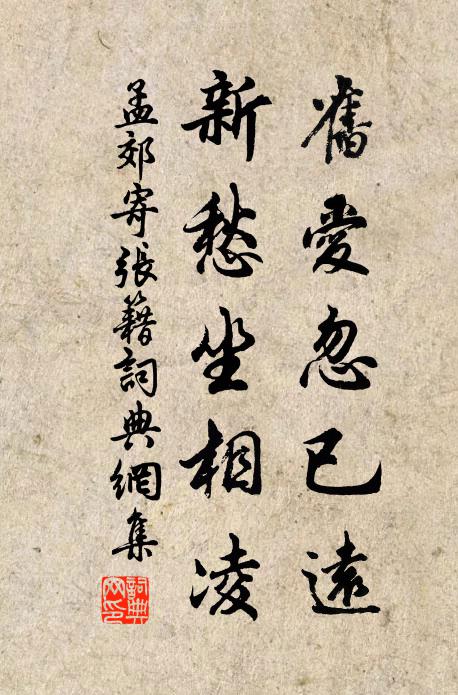 舊愛忽已遠
新愁坐相凌
孟郊寄張籍詞典網集
詞典